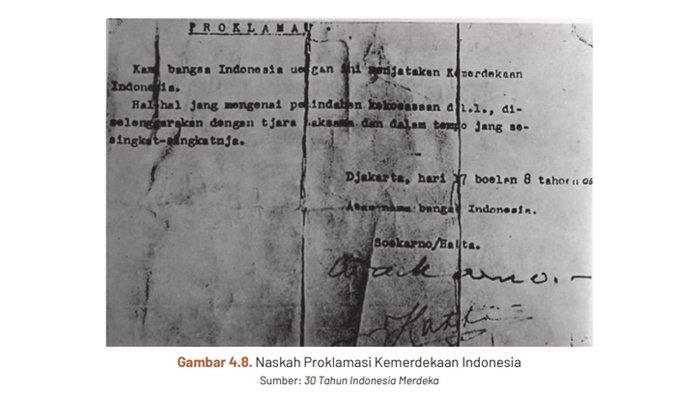 PROKLAMASI
Kami bangsa Indonesia dengan ini menjatakan Kemerdekaan
Indonesia.
Hal-hal jang mengenai pemindahan kekoeasaan d.l.l., di-
selenggarakan dengan tjara saksama dan dalam tempo jang se-
singkat-singkatnja.
Djakarta, hari 17 boelan 8 tahoen 05
Atas nama bangsa Indonesia.
Soekarno/Hatta.
Soekarno.-
Hatta
Gambar 4.8. Naskah Proklamasi Kemerdekaan Indonesia
Sumber: 30 Tahun Indonesia Merdeka